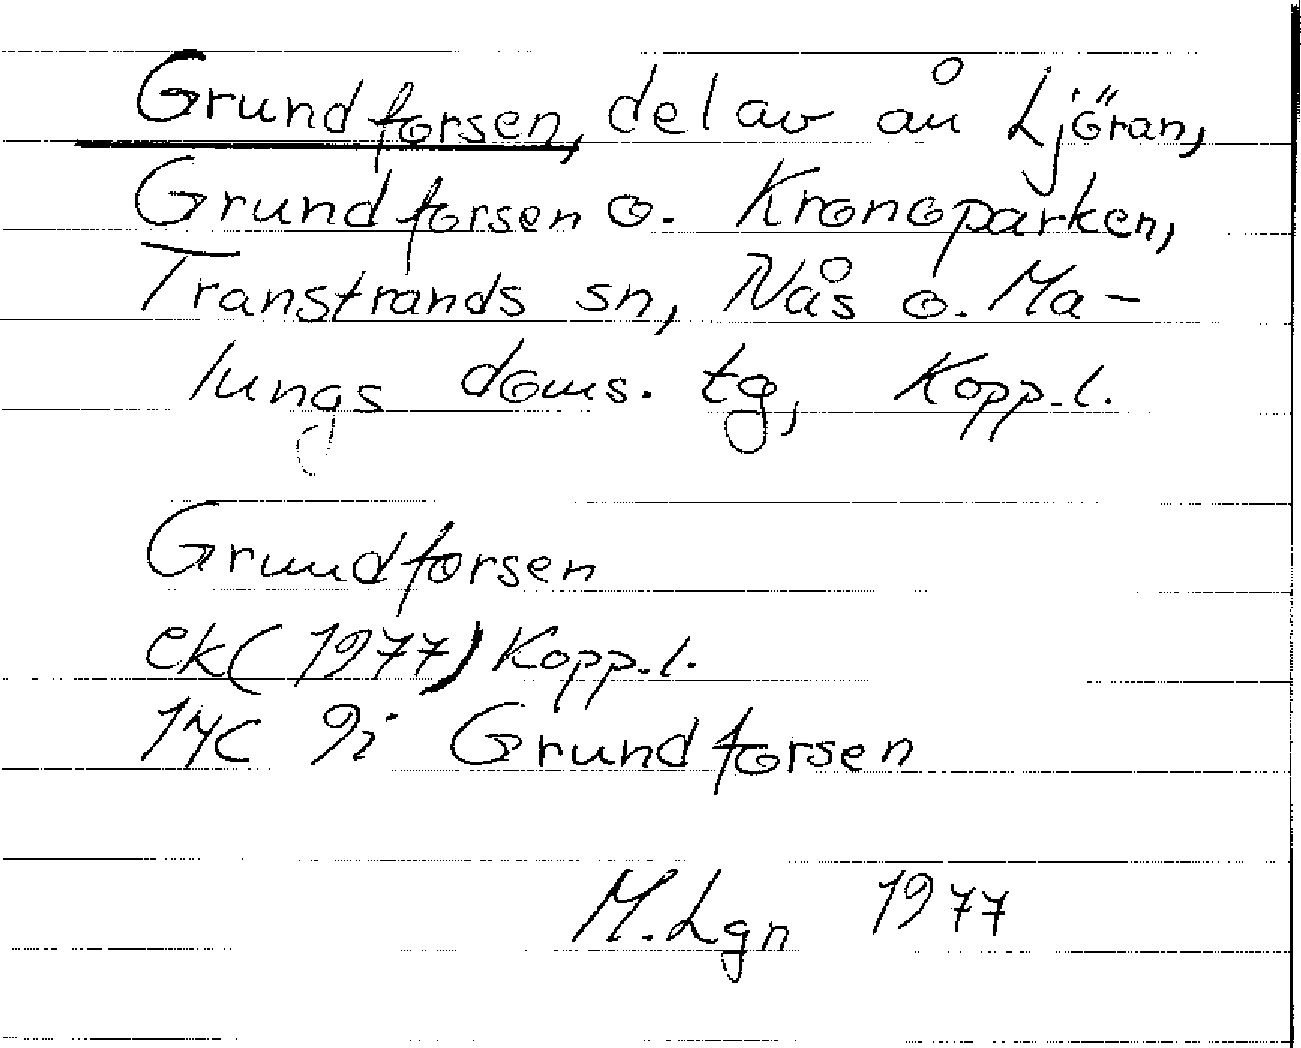 Grundforsen, del av ån Ljöran,
Grundforsen o. Kronoparken,
Transtrands sn, Nås o. Ma-
lungs doms. tg, Kopp.l.
Grundforsen
ek (1977) Kopp.l.
14C 9i Grundforsen
M. Lgn 1977